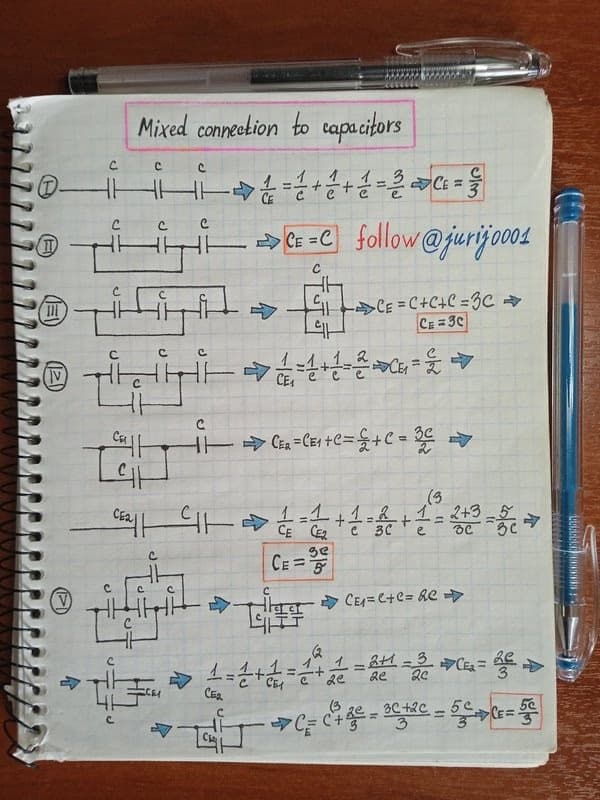 Mixed connection to capacitors
I C C C 1/CE = 1/C + 1/C + 1/C = 3/C CE = C/3
II C C C CE = C follow @jurij0001
III C C C C C C CE = C+C+C = 3C
CE = 3C
IV C C C C 1/CE1 = 1/C + 1/C = 2/C CE1 = C/2
CE1 C C CE2 = CE1 + C = C/2 + C = 3C/2
CE2 C 1/CE = 1/CE2 + 1/C = 2/3C + 1/C (3 = 2+3/3C = 5/3C
CE = 3C/5
V C C C C C C C C C CE1 = C+C = 2C
C CE1 C 1/CE2 = 1/C + 1/CE1 = 1/C (2 + 1/2C = 2+1/2C = 3/2C CE2 = 2C/3
C CE2 CE = C (3 + 2C/3 = 3C+2C/3 = 5C/3 CE = 5C/3